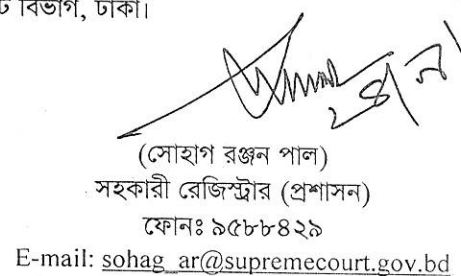 বিভাগ, ঢাকা।
(সোহাগ রঞ্জন পাল)
সহকারী রেজিস্ট্রার (প্রশাসন)
ফোনঃ ৯৫৮৮৪২৯
E-mail: sohag_ar@supremecourt.gov.bd